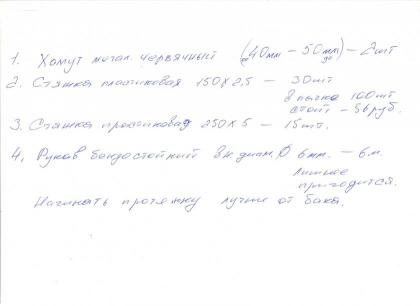 1. Хомут метал. червячный (от 40мм – 50мм до) – 2шт
2. Стяжка пластиковая 150×2,5 – 30шт
В пачке 100шт
стоит – 56руб.
3. Стяжка пластиковая 250×5 – 15шт.
4. Рукав бензостойкий вн. диам. Ø 6мм. – 6м.
лишнее
пригодится.
Начинать протяжку лучше от бака.